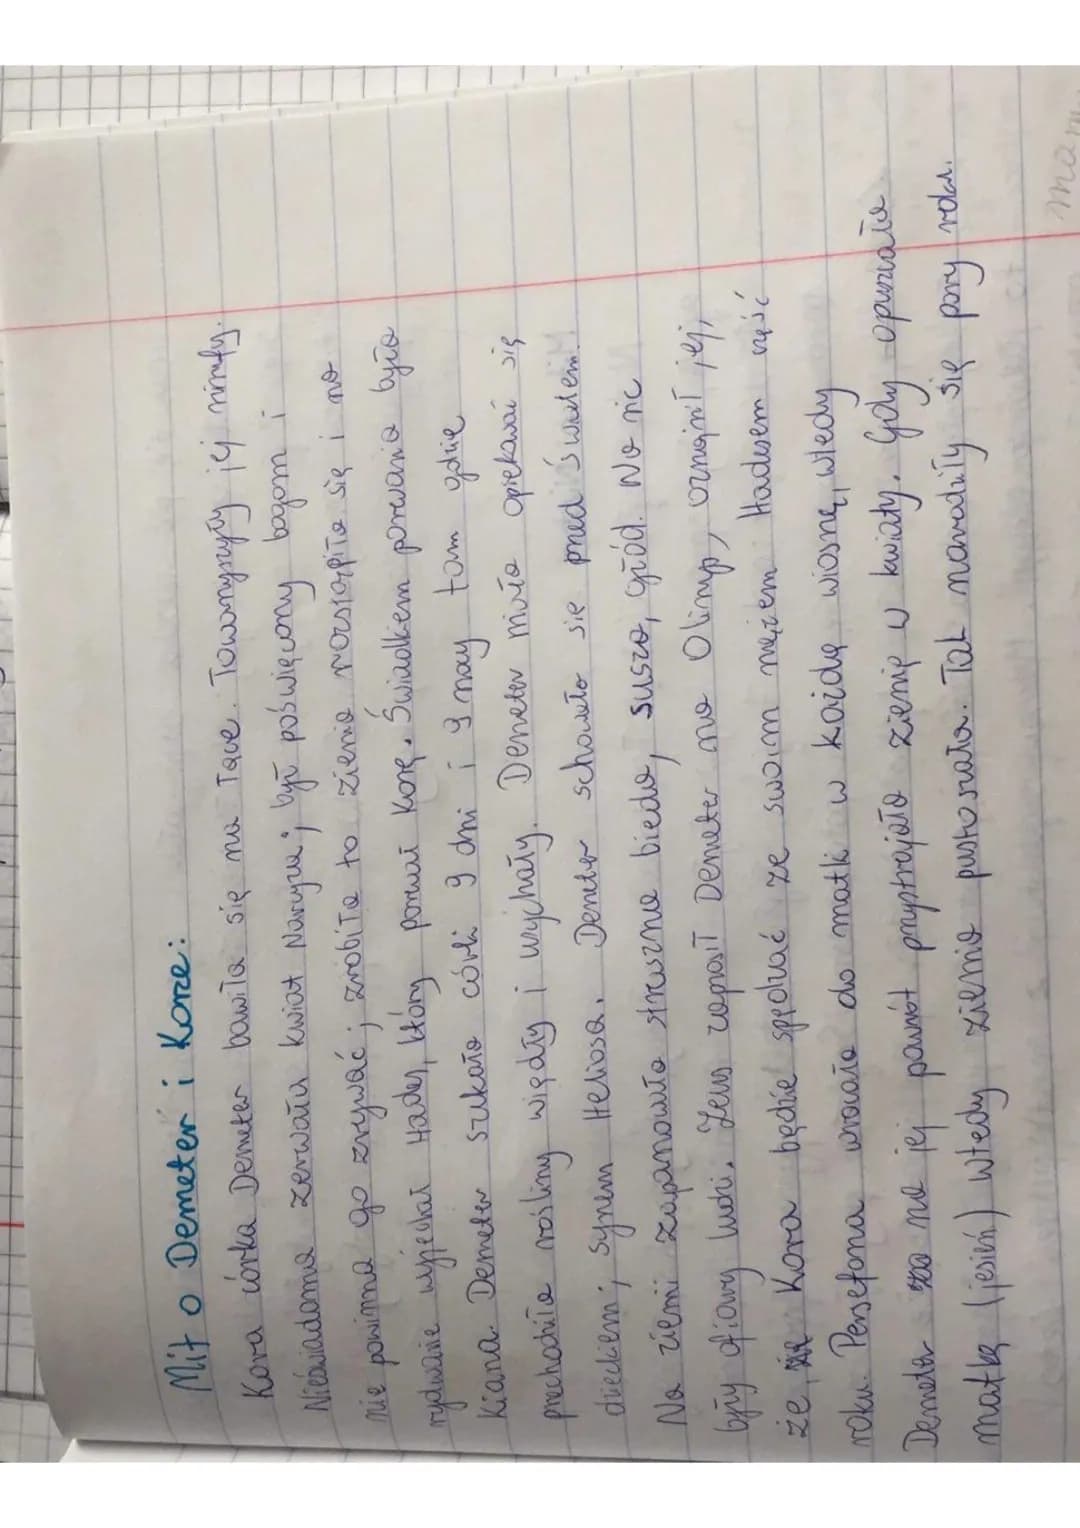 Mit o Demeter i Korze:
Kora córka Demeter bawiła się na łące. Towarzyszyły jej nimfy.
Nieświadoma zerwała kwiat Narcyza; był poświęcony bogom i
nie powinna go zrywać; zrobiła to ziemia rozstąpiła się i na
rydwanie wyjechał Hades, który porwał Korę. Świadkiem porwania była
Kiana. Demeter szukała córki 9 dni i 9 nocy tam gdzie
przechodziła rośliny więdły i usychały. Demeter miała opiekować się
dzieckiem; synem Heliosa. Demeter schowała się przed światem.
Na ziemi zapanowała straszna bieda, susza, głód. Na nic
były ofiary ludzi. Zeus zaprosił Demeter na Olimp, oznajmił jej,
że Kora będzie spędzać ze swoim mężem Hadesem część
roku. Persefona wracała do matki w każdą wiosnę, wtedy
Demeter na jej powrót przystrajała ziemię w kwiaty. Gdy opuszczała
matkę (jesień) wtedy ziemia pustoszała. Tak narodziły się pory roku.